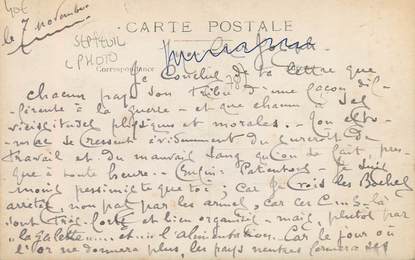 le 7 novembre
CARTE POSTALE
SEPTEUIL
C PHOTO
Correspondance
Je Conclus de ta lettre que
chacun paye son tribut d'une façon dif-
férente à la guerre - et que chacun a ses
vicissitudes physiques et morales. - Ton
se ressent évidemment du surcroît de
travail et du mauvais sang qu'on se fait, pres-
que à toute heure. - Enfin! Patientons - Je suis
moins pessimiste que toi; Car je crois les Boches
arrêtés, non pas par les armes, car ces C... S-là
sont très forts et bien organisés - mais, plutôt par
"la galette".... et.. "l'alimentation. Car le jour où
l'or ne donnera plus, les pays neutres fermera ses